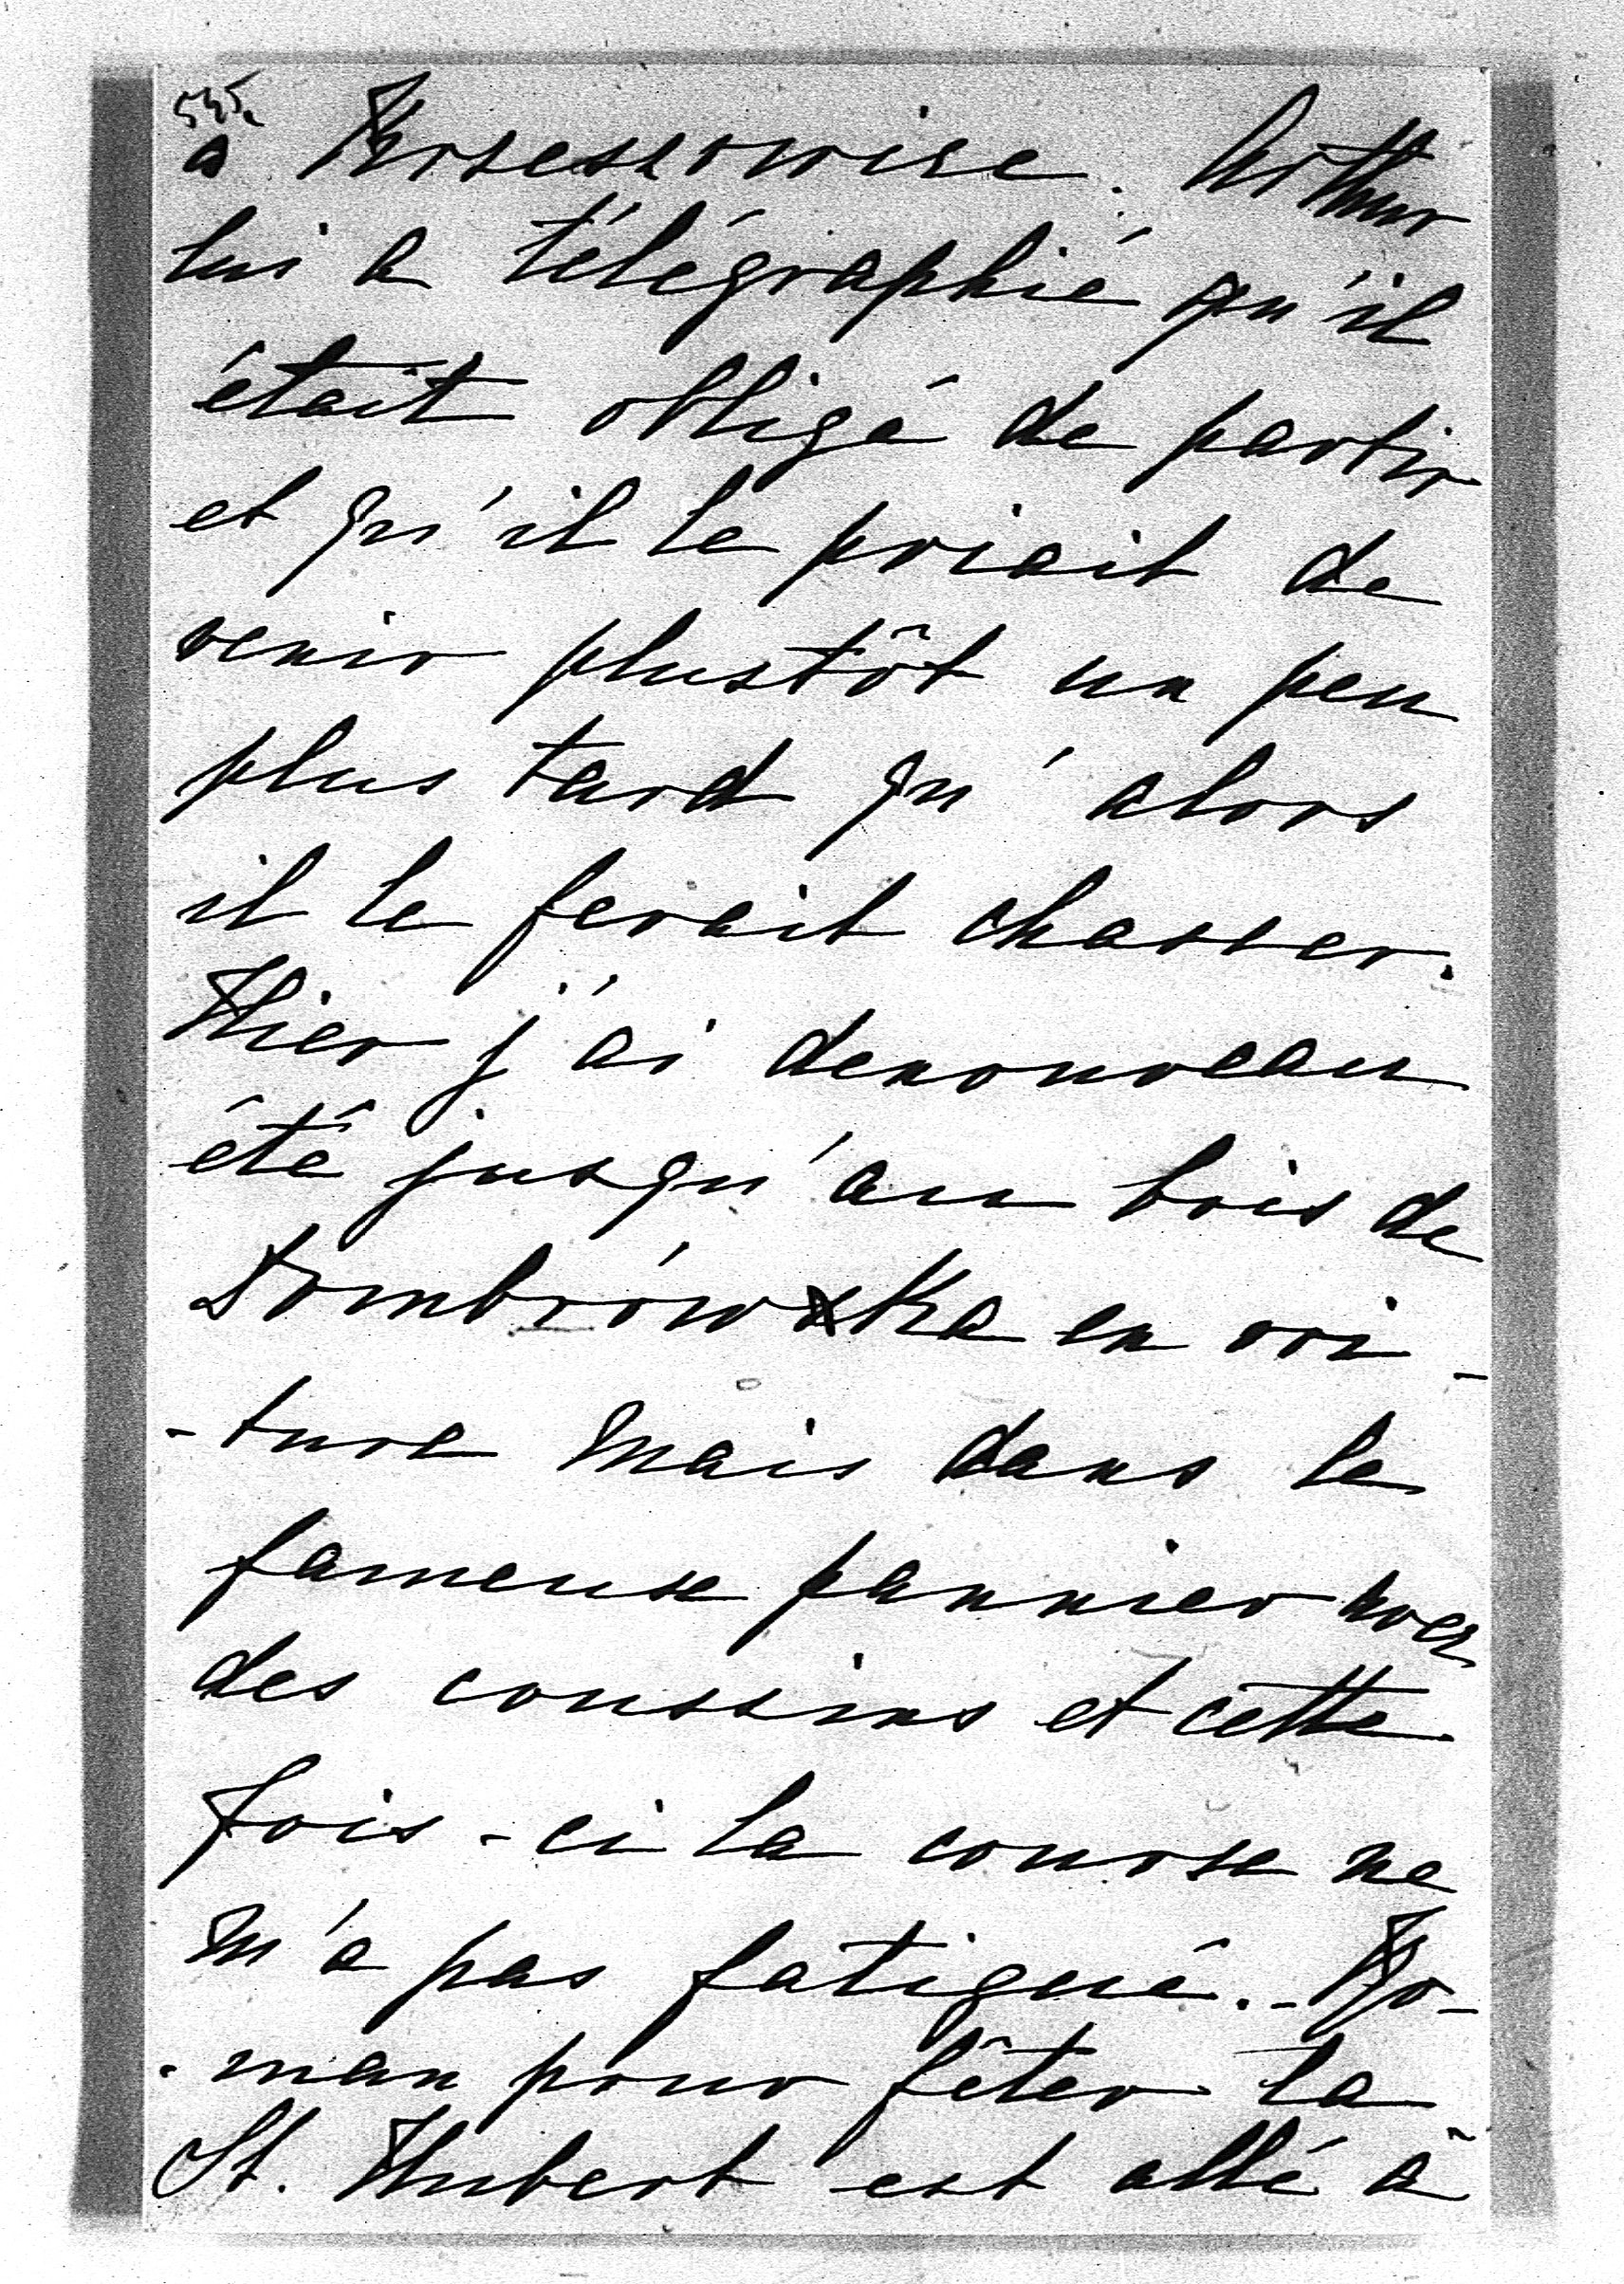 à Krzeszowice. Arthur
lui a télégraphié qu'il
était obligé de partir
et qu'il le priait de
venir plustôt un peu
plus tard qu'alors
il le ferait chasser.
Hier j'ai denouveau
été jusqu'au bois de
Dombrówska en voi-
-ture mais dans le
fameuse pannier avec
des coussins et cette
fois-ci la course ne
m'a pas fatigué. - Ro-
-man pour fêter la
St. Hubert est allé à